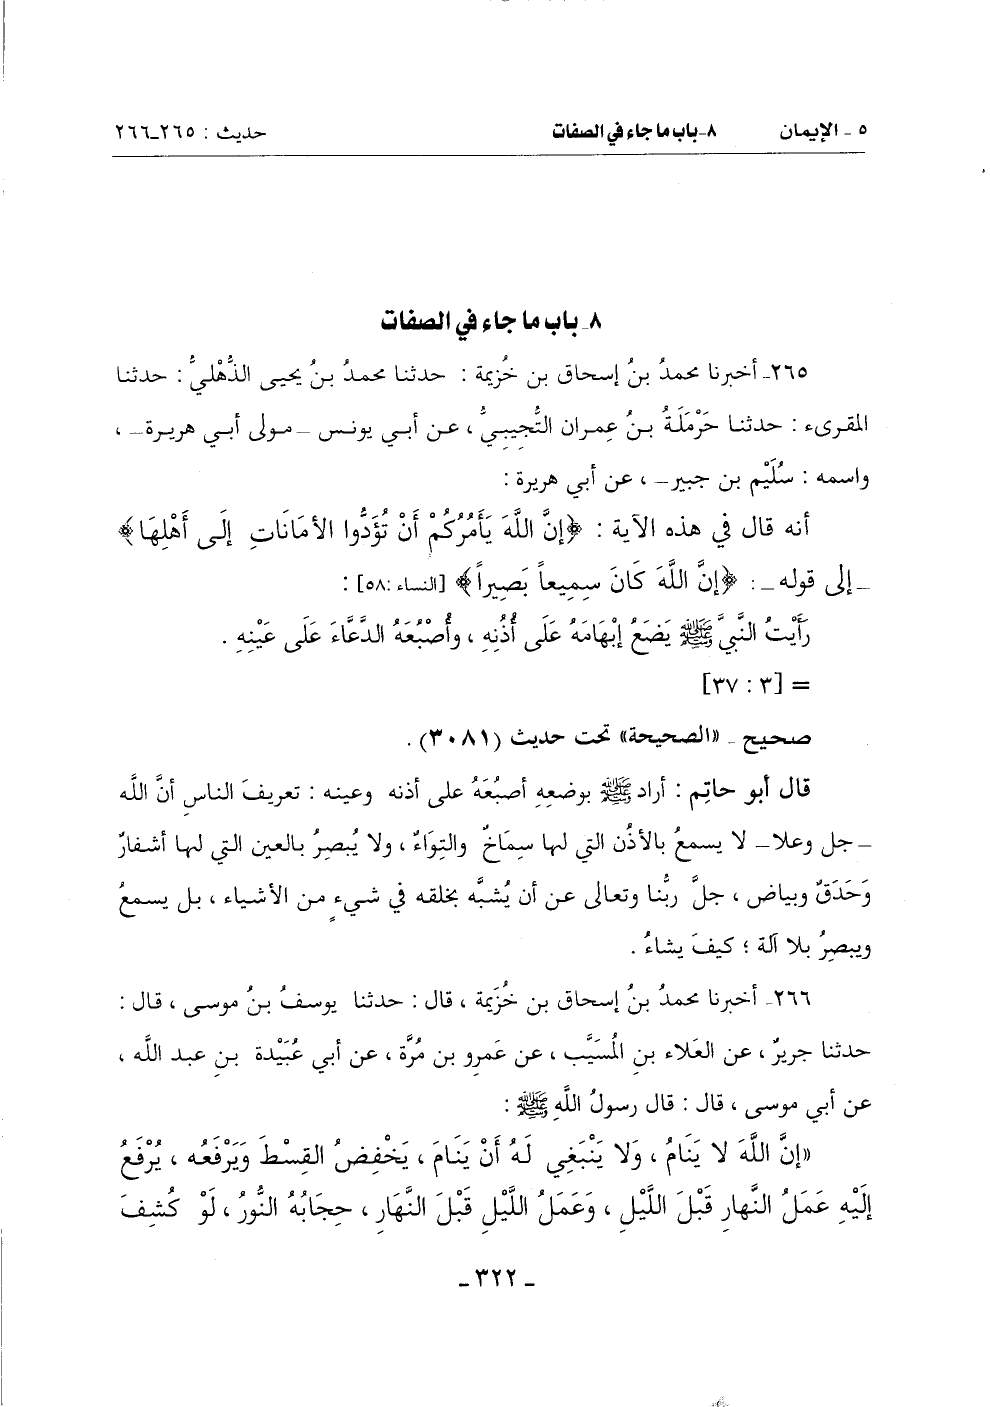 ٥ ـ الإيمان ٨ـ باب ما جاء في الصفات حديث : ٢٦٥ـ٢٦٦
٨ـ باب ما جاء في الصفات
٢٦٥ـ أخبرنا محمدُ بنُ إسحاق بن خُزيمة : حدثنا محمدُ بنُ يحيى الذُّهْليُّ : حدثنا
المقرىء : حدثنا حَرْمَلَةُ بنُ عِمران التُّجيبيُّ ، عن أبي يونس ـ مولى أبي هريرة ـ ،
واسمه : سُلَيْم بن جبير ـ ، عن أبي هريرة :
أنه قال في هذه الآية : ﴿إنَّ اللَّهَ يَأمُرُكُمْ أَنْ تُؤَدُّوا الأمَانَاتِ إلَى أَهْلِهَا﴾
ـ إلى قوله ـ : ﴿إنَّ اللَّهَ كَانَ سِمِيعاً بَصِيراً﴾ [النساء :٥٨] :
رَأَيْتُ النَّبِيَّ ﷺ يَضَعُ إبْهَامَهُ عَلَى أُذُنِهِ ، وأُصْبُعَهُ الدَّعَّاءَ عَلَى عَيْنِهِ .
= [٣ : ٣٧]
صحيح ـ «الصحيحة» تحت حديث (٣٠٨١) .
قال أبو حاتِم : أراد ﷺ بوضعِهِ أصبُعَهُ على أذنه وعينه : تعريفَ الناسِ أنَّ اللَّه
ـ جل وعلا ـ لا يسمعُ بالأذُن التي لها سِمَاخٌ والتِوَاءٌ ، ولا يُبصِرُ بالعين التي لها أشفارٌ
وَحَدَقٌ وبياض ، جلَّ ربُّنا وتعالى عن أن يُشبَّه بخلقه في شيءٍ من الأشياء ، بل يسمعُ
ويبصِرُ بلا آلة ؛ كيفَ يشاءُ .
٢٦٦ـ أخبرنا محمدُ بنُ إسحاق بن خُزَيمة ، قال : حدثنا يوسفُ بنُ موسى ، قال :
حدثنا جريرٌ ، عن العَلاء بنِ المُسَيَّب ، عن عَمرِو بن مُرَّة ، عن أبي عُبَيْدة بن عبد اللَّه ،
عن أبي موسى ، قال : قال رسولُ اللَّهِ ﷺ :
«إنَّ اللَّهَ لا يَنَامُ ، وَلا يَنْبَغِي لَهُ أنْ يَنَامَ ، يَخْفِضُ القِسْطَ وَيَرْفَعُه ، يُرْفَعُ
إلَيْهِ عَمَلُ النَّهارِ قَبْلَ اللَّيْلِ ، وَعَمَلُ اللَّيْلِ قَبْلَ النَّهَارِ ، حِجَابُهُ النُّورُ ، لَوْ كُشِفَ
ـ ٣٢٢ ـ